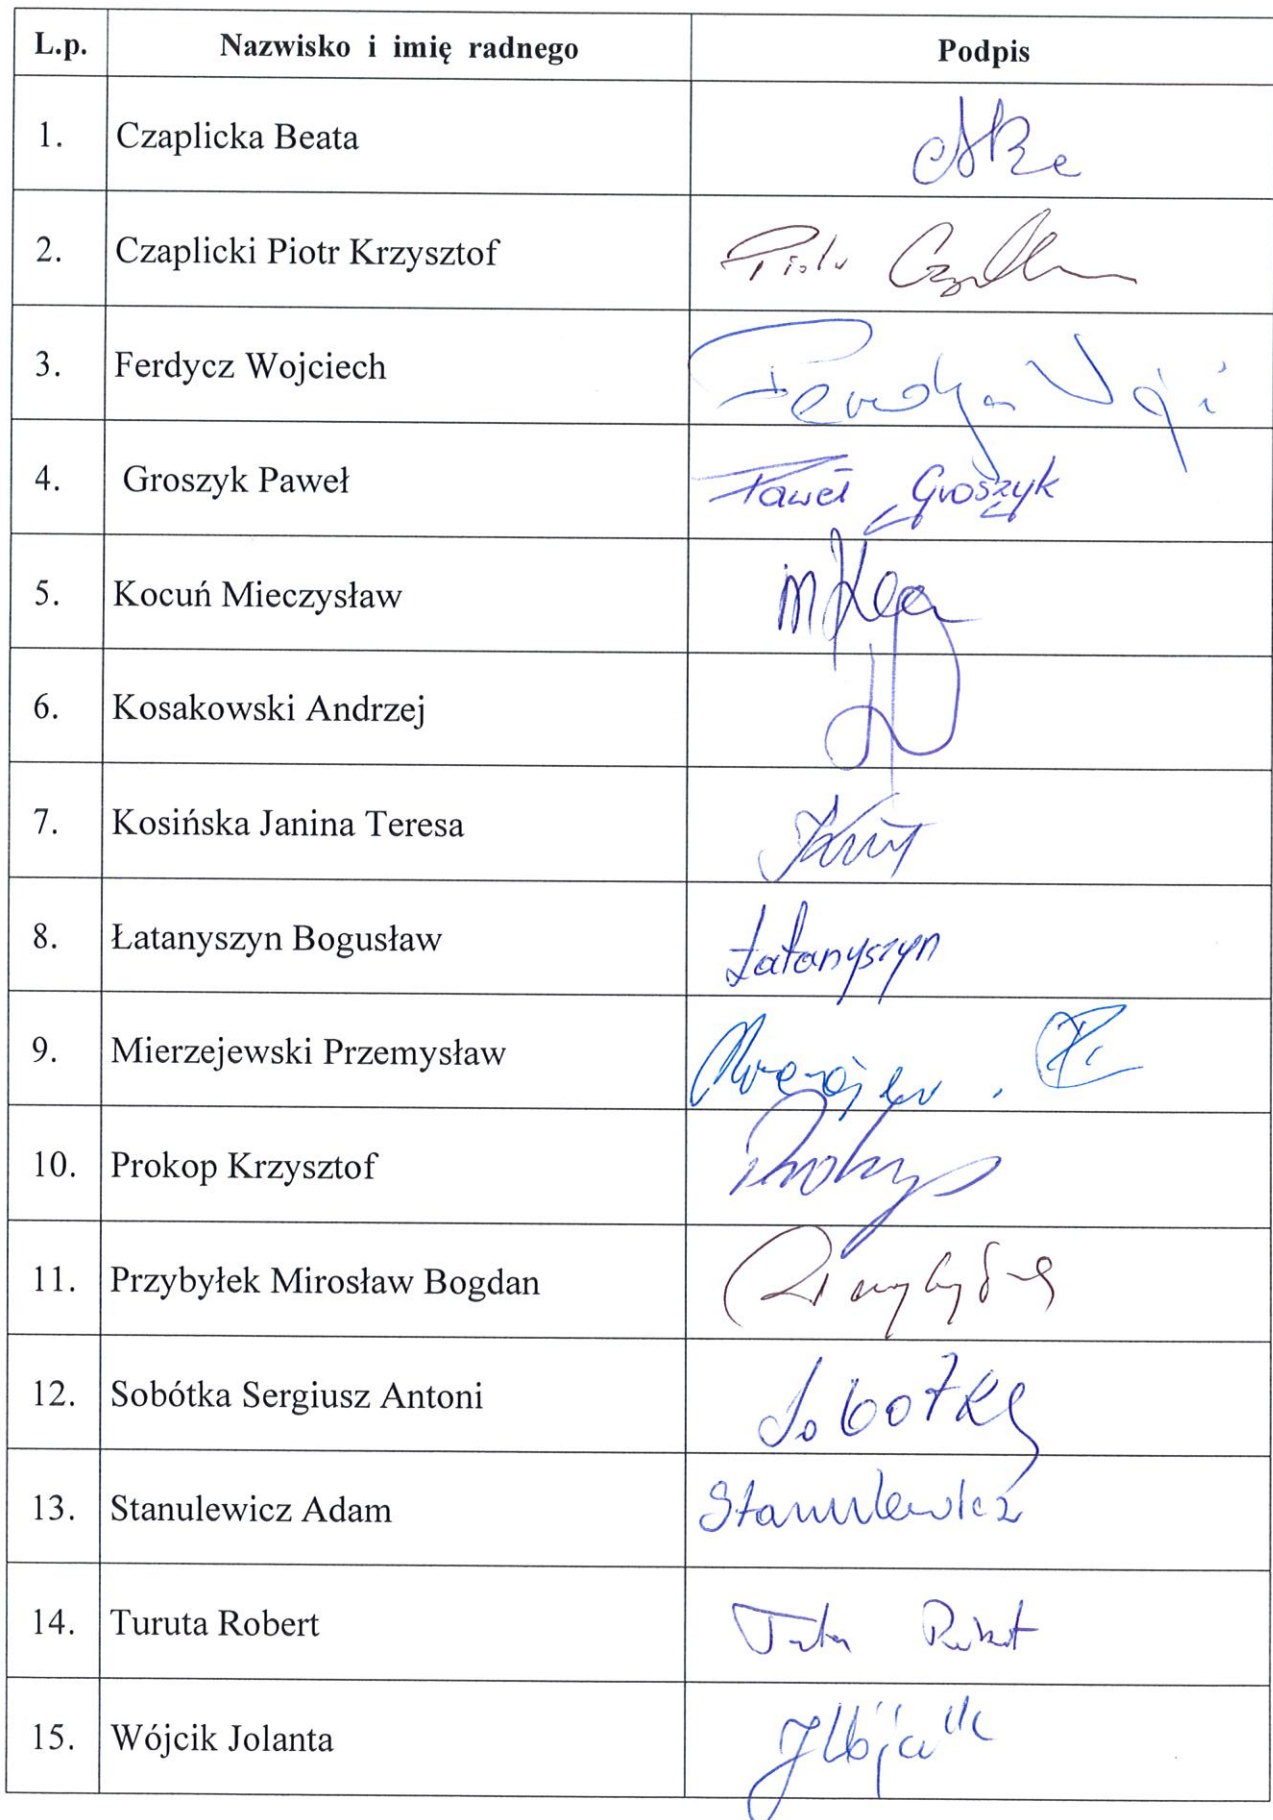 L.p. Nazwisko i imię radnego Podpis
1. Czaplicka Beata
2. Czaplicki Piotr Krzysztof Piotr
3. Ferdycz Wojciech
4. Groszyk Paweł Paweł Groszyk
5. Kocuń Mieczysław
6. Kosakowski Andrzej
7. Kosińska Janina Teresa
8. Łatanyszyn Bogusław Łatanyszyn
9. Mierzejewski Przemysław
10. Prokop Krzysztof Prokop
11. Przybyłek Mirosław Bogdan
12. Sobótka Sergiusz Antoni Sobótka
13. Stanulewicz Adam Stanulewicz
14. Turuta Robert Robert
15. Wójcik Jolanta JWójcik